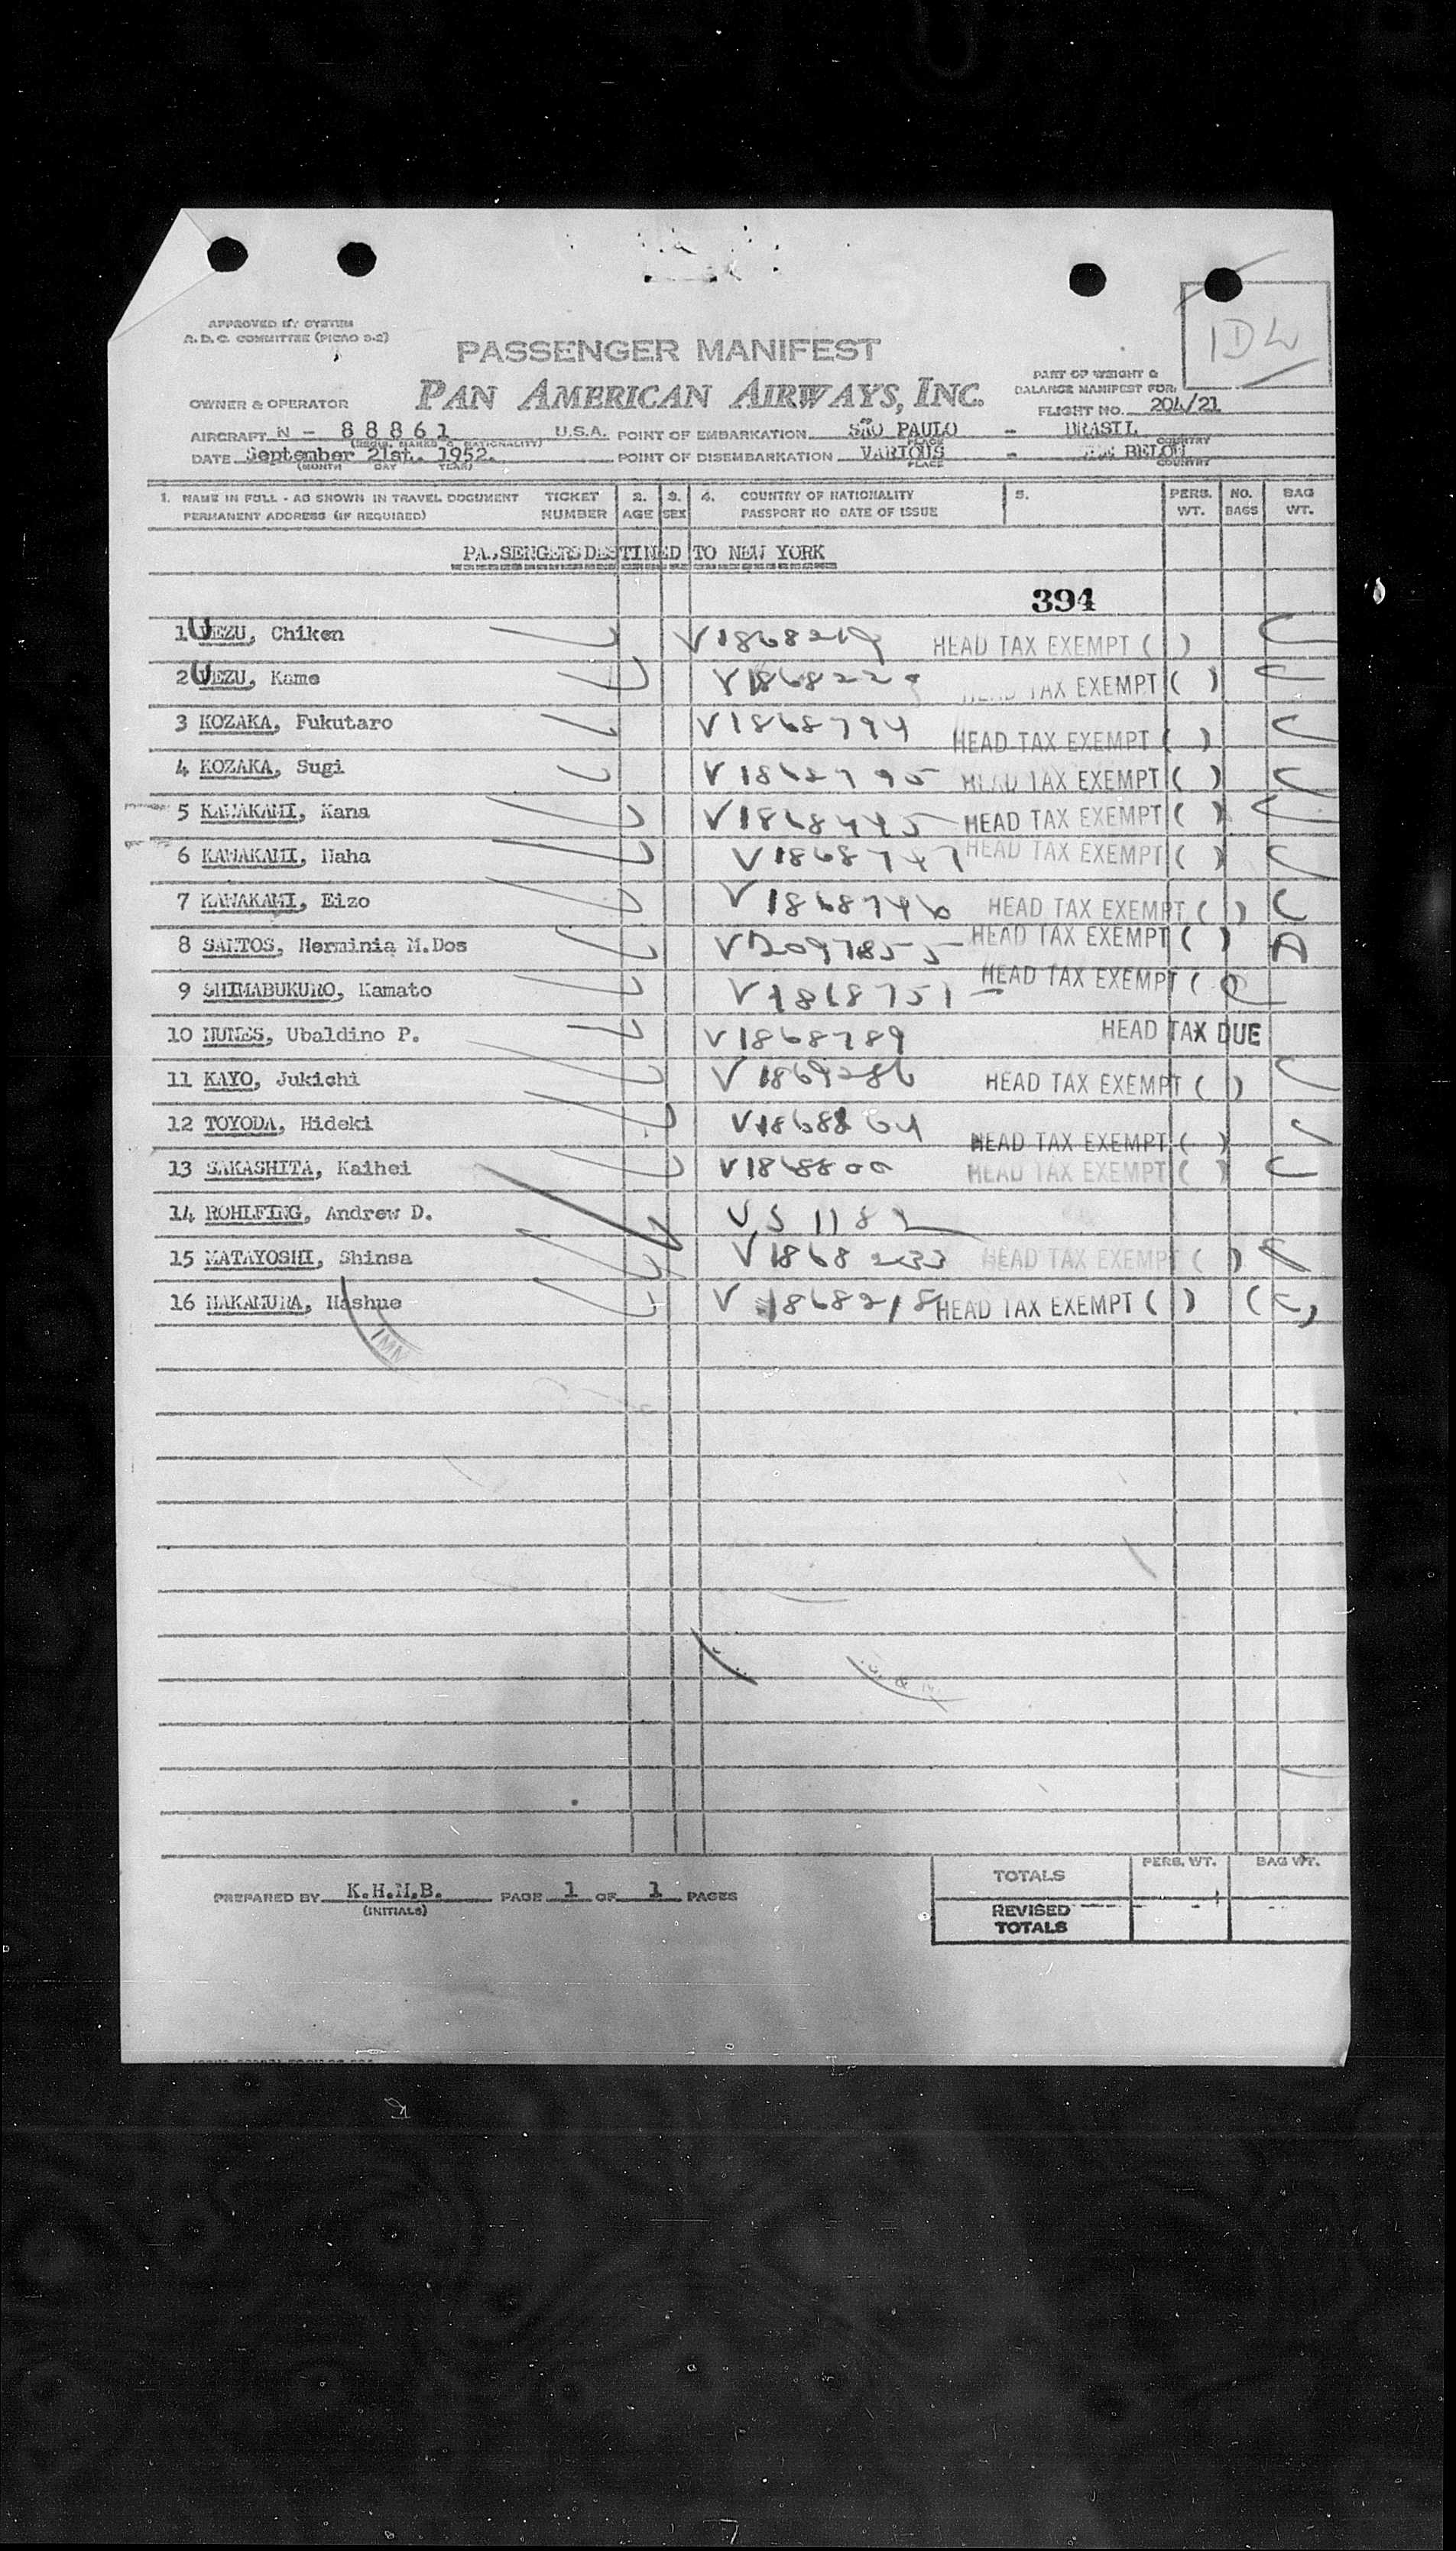 APPROVED BY SYSTEM
A. D. C. COMMITTEE (PICAO 9-2)
1D4
PASSENGER MANIFEST
PAN AMERICAN AIRWAYS, INC.
PART OF WEIGHT &
BALANCE MANIFEST FOR:
OWNER & OPERATOR
FLIGHT NO. 204/21
AIRCRAFT N - 88861 U.S.A. POINT OF EMBARKATION SÃO PAULO - BRASIL
(REGIS. MARKS & NATIONALITY) PLACE COUNTRY
DATE September 21st. 1952. POINT OF DISEMBARKATION VARIOUS - BELOW
(MONTH DAY YEAR) PLACE COUNTRY
1. NAME IN FULL - AS SHOWN IN TRAVEL DOCUMENT TICKET 2. 3. 4. COUNTRY OF NATIONALITY 5. PERS. NO. BAG
PERMANENT ADDRESS (IF REQUIRED) NUMBER AGE SEX PASSPORT NO DATE OF ISSUE WT. BAGS WT.
PASSENGERS DESTINED TO NEW YORK
394
1 UEZU, Chiken V1868219 HEAD TAX EXEMPT ( ) C
2 UEZU, Kame V1868220 HEAD TAX EXEMPT ( ) C
3 KOZAKA, Fukutaro V1868794 HEAD TAX EXEMPT ( ) C
4 KOZAKA, Sugi V1868795 HEAD TAX EXEMPT ( ) C
5 KAWAKAMI, Kana V1868745 HEAD TAX EXEMPT ( ) C
6 KAWAKAMI, Naha V1868747 HEAD TAX EXEMPT ( ) C
7 KAWAKAMI, Eizo V1868746 HEAD TAX EXEMPT ( ) C
8 SANTOS, Herminia M.Dos HEAD TAX EXEMPT ( ) A
9 SHIMABUKURO, Kamato V1868751 HEAD TAX EXEMPT ( ) C
10 NUNES, Ubaldino P. V1868789 HEAD TAX DUE
11 KAYO, Jukichi V1869286 HEAD TAX EXEMPT ( ) C
12 TOYODA, Hideki V1868864 HEAD TAX EXEMPT ( )
13 SAKASHITA, Kaihei V1868800 HEAD TAX EXEMPT ( ) C
14 ROHLFING, Andrew D.
15 MATAYOSHI, Shinsa V1868233 HEAD TAX EXEMPT ( )
16 NAKAMURA, Hashue V1868218 HEAD TAX EXEMPT ( ) (C)
IMM
TOTALS PERS. WT. BAG WT.
PREPARED BY K.H.M.B. PAGE 1 OF 1 PAGES
(INITIALS)
REVISED
TOTALS